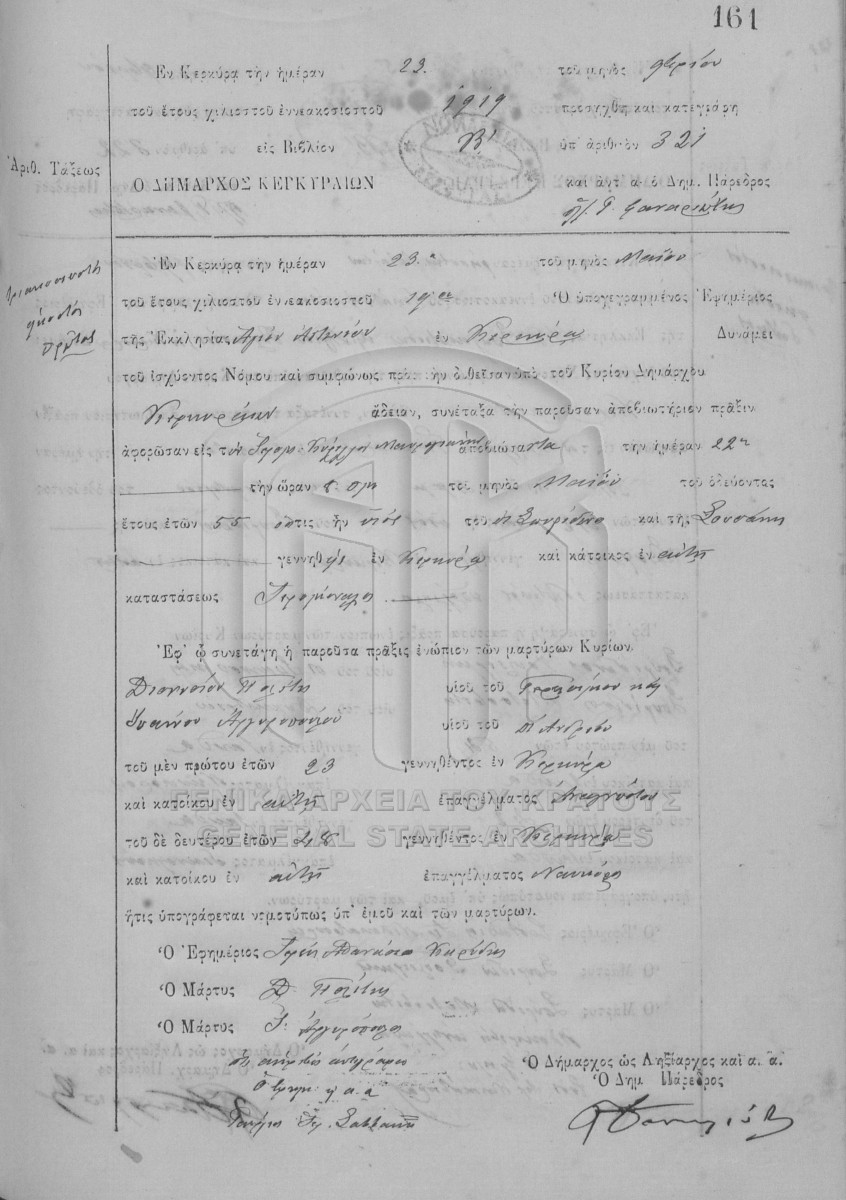 161
Ἐν Κερκύρᾳ τὴν ἡμέραν 23. τοῦ μηνὸς
τοῦ ἔτους χιλιοστοῦ ἐννεακοσιοστοῦ 1919 προσήχθη καὶ κατεγράφη
εἰς Βιβλίον Β' ὑπ' ἀριθμὸν 321
Ἀριθ. Τάξεως
Ο ΔΗΜΑΡΧΟΣ ΚΕΡΚΥΡΑΙΩΝ καὶ ἀντ' α. ὁ Δημ. Πάρεδρος
Ἐν Κερκύρᾳ τὴν ἡμέραν 23. τοῦ μηνὸς Μαΐου
τριακοσιοστὴ
εἰκοστὴ
πρώτη
τοῦ ἔτους χιλιοστοῦ ἐννεακοσιοστοῦ 19ου Ὁ ὑπογεγραμμένος Ἐφημέριος
τῆς Ἐκκλησίας Ἁγίου Ἀντωνίου ἐν Κερκύρᾳ Δυνάμει
τοῦ ἰσχύοντος Νόμου καὶ συμφώνως πρὸς τὴν δοθεῖσαν ὑπὸ τοῦ Κυρίου Δημάρχου
Κερκυραίων ἄδειαν, συνέταξα τὴν παροῦσαν ἀποβιωτήριον πρᾶξιν
ἀφορῶσαν εἰς τὸν ἀποβιώσαντα τὴν ἡμέραν 22
τὴν ὥραν 8 π.μ. τοῦ μηνὸς Μαΐου τοῦ ὁδεύοντος
ἔτους ἐτῶν 55 ὅστις ἦν υἱὸς τοῦ Σπυρίδωνος καὶ τῆς Σουσάνης
γεννηθεὶς ἐν Κερκύρᾳ καὶ κάτοικος ἐν αὐτῇ
καταστάσεως Ἱερομόναχος
Ἐφ' ᾧ συνετάγη ἡ παροῦσα πρᾶξις ἐνώπιον τῶν μαρτύρων Κυρίων,
Διονυσίου Πολίτη υἱοῦ τοῦ Γερασίμου καὶ
Ἰωάννου Ἀργυροπούλου υἱοῦ τοῦ Ἀνδρέου
τοῦ μὲν πρώτου ἐτῶν 23 γεννηθέντος ἐν Κερκύρᾳ
καὶ κατοίκου ἐν αὐτῇ ἐπαγγέλματος
ΓΕΝΙΚΑ ΑΡΧΕΙΑ ΤΟΥ ΚΡΑΤΟΥΣ
GENERAL STATE ARCHIVES
τοῦ δὲ δευτέρου ἐτῶν 48 γεννηθέντος ἐν Κερκύρᾳ
καὶ κατοίκου ἐν αὐτῇ ἐπαγγέλματος
ἥτις ὑπογράφεται νομοτύπως ὑπ' ἐμοῦ καὶ τῶν μαρτύρων.
Ὁ Ἐφημέριος Ἱερεὺς Ἀθανάσιος
Ὁ Μάρτυς Δ. Πολίτης
Ὁ Μάρτυς Ἰ. Ἀργυρόπουλος
Ὁ Δήμαρχος ὡς Ληξίαρχος καὶ α. α.
Ὁ Δημ Πάρεδρος